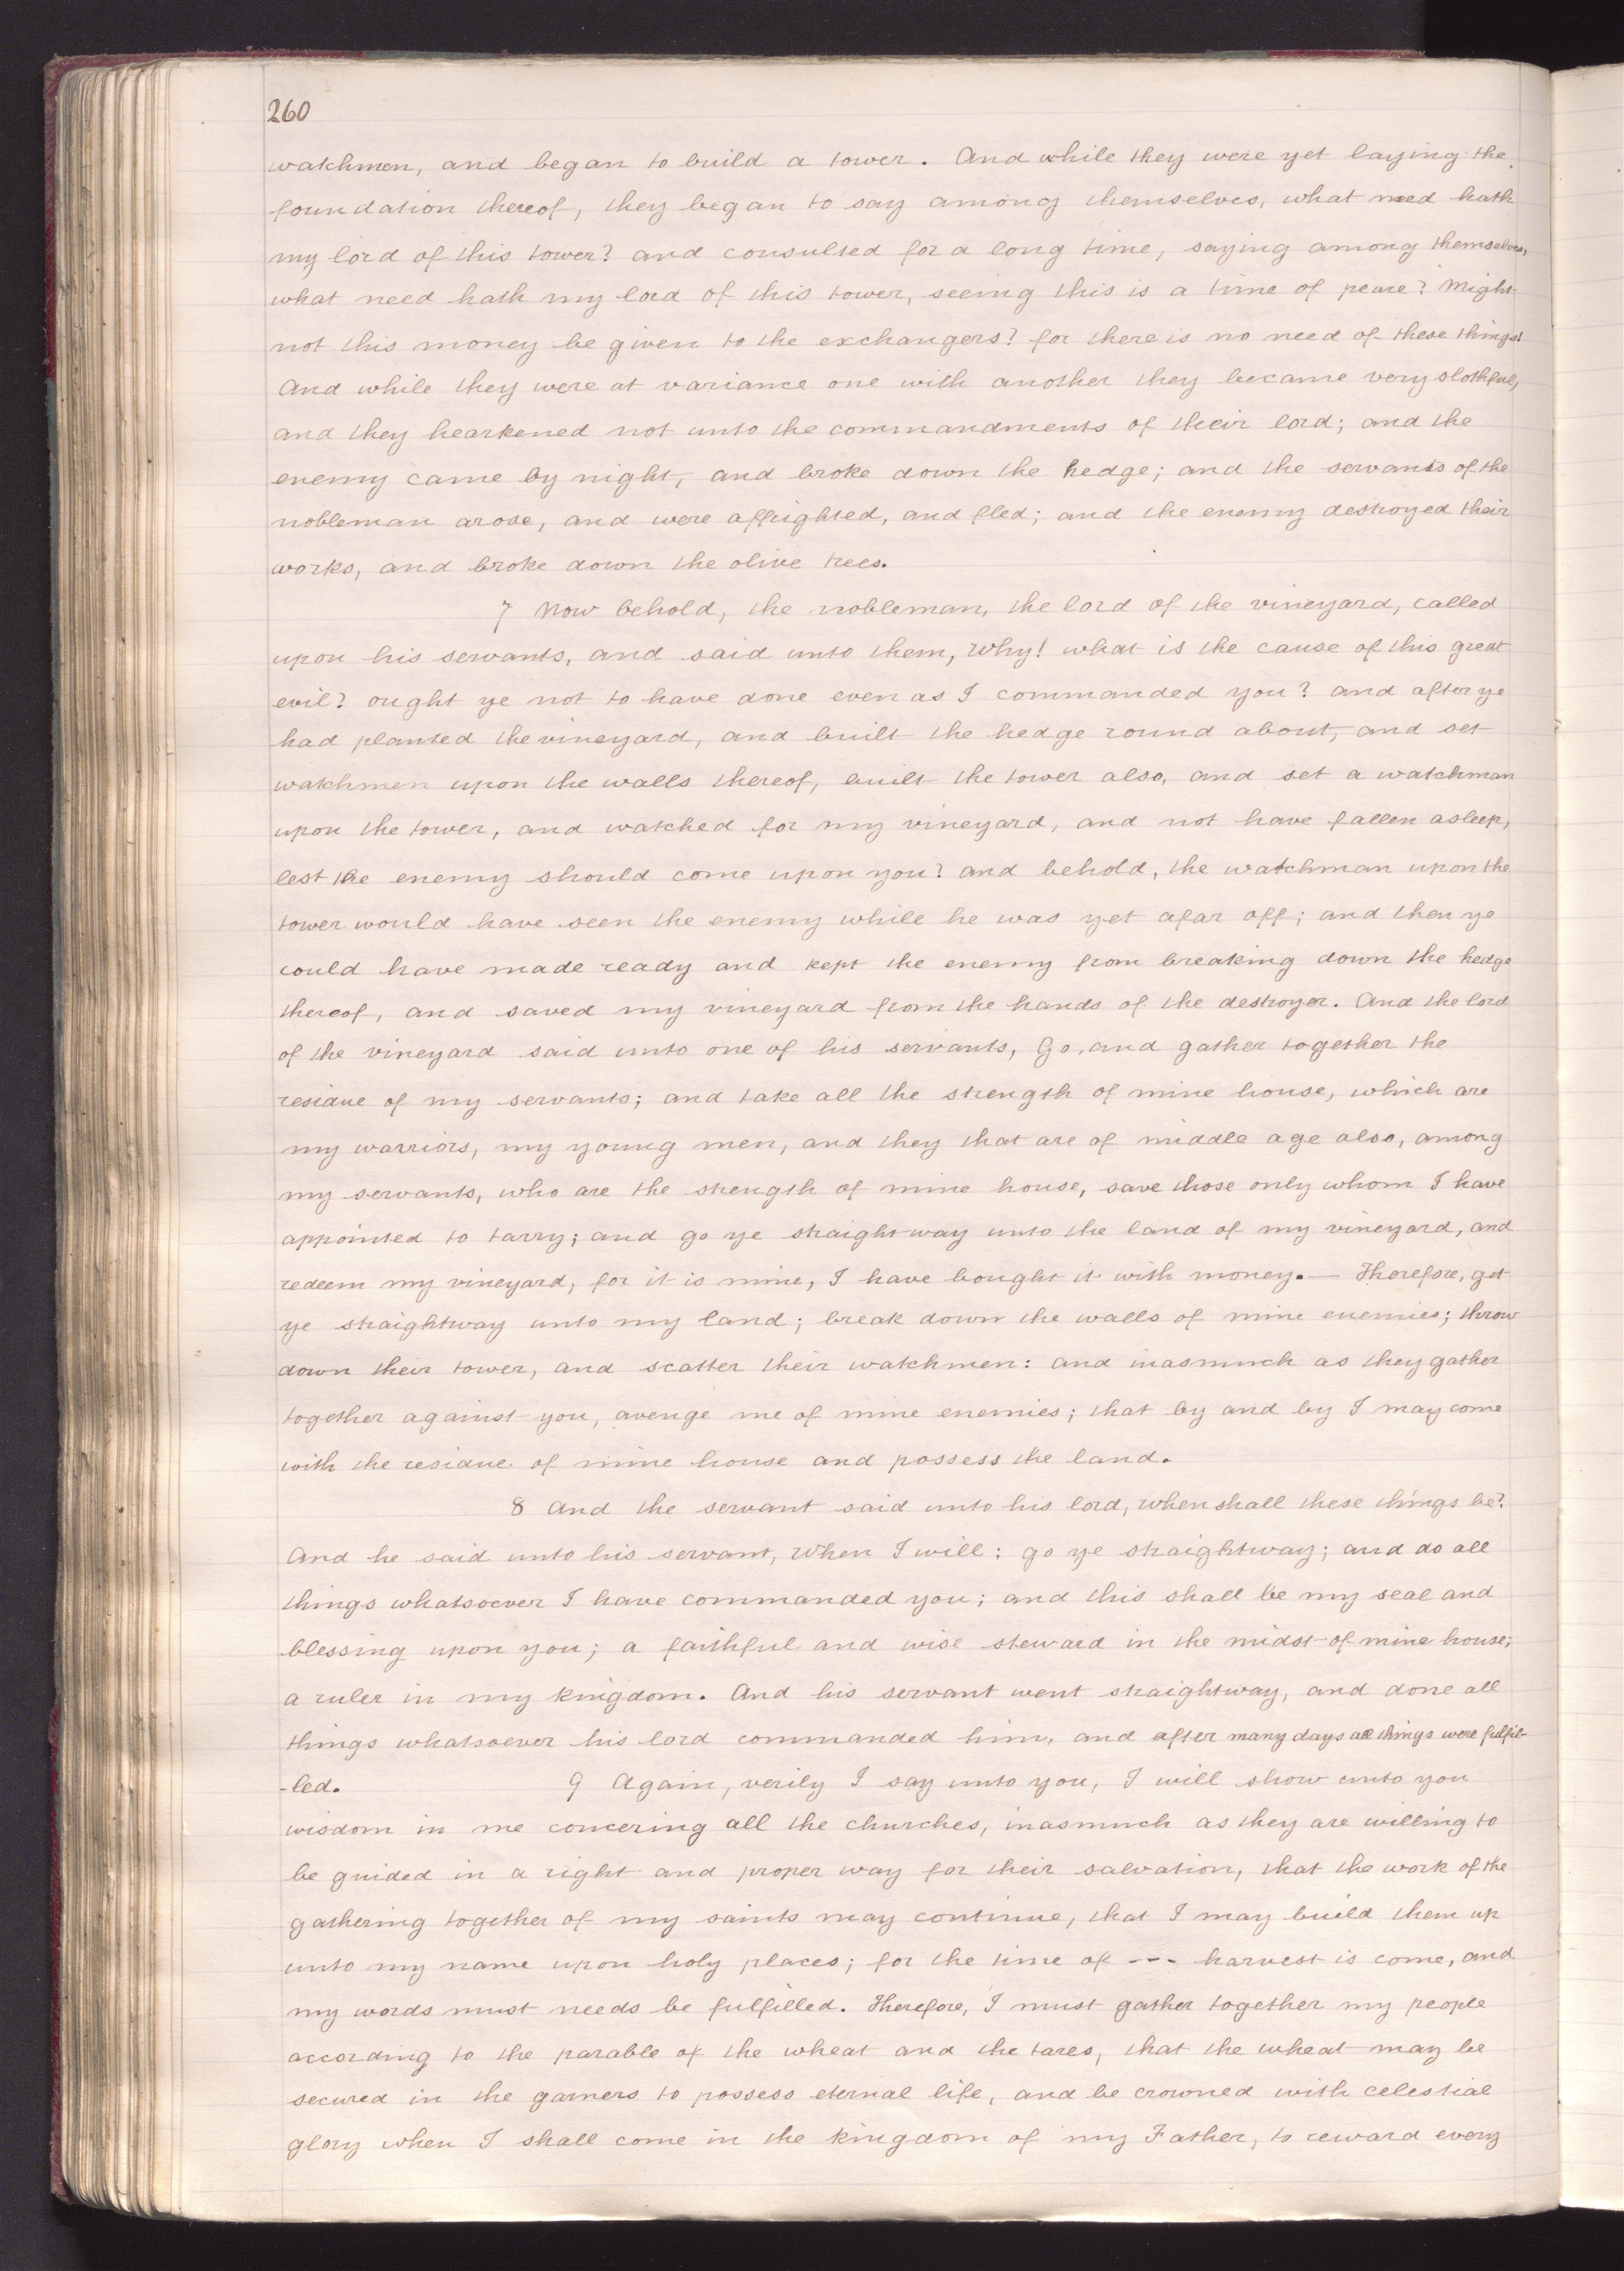 260
watchmen, and began to build a tower. And while they were yet laying the
foundation thereof, they began to say among themselves, what need hath
my lord of this tower? and consulted for a long time, saying among themselves,
what need hath my lord of this tower, seeing this is a time of peace? Might
not this money be given to the exchangers? for there is no need of these things!
And while they were at variance one with another they became very slothful,
and they hearkened not unto the commandments of their lord; and the
enemy came by night, and broke down the hedge; and the servants of the
nobleman arose, and were affrighted, and fled; and the enemy destroyed their
works, and broke down the olive trees.
7 Now behold, the nobleman, the lord of the vineyard, called
upon his servants, and said unto them, Why! what is the cause of this great
evil? ought ye not to have done even as I commanded you? and after ye
had planted the vineyard, and built the hedge round about, and set
watchmen upon the walls thereof, built the tower also, and set a watchman
upon the tower, and watched for my vineyard, and not have fallen asleep,
lest the enemy should come upon you? and behold, the watchman upon the
tower would have seen the enemy while he was yet afar off; and then ye
could have made ready and kept the enemy from breaking down the hedge
thereof, and saved my vineyard from the hands of the destroyer. And the lord
of the vineyard said unto one of his servants, Go, and gather together the
residue of my servants; and take all the strength of mine house, which are
my warriors, my young men, and they that are of middle age also, among
my servants, who are the strength of mine house, save those only whom I have
appointed to tarry; and go ye straightway unto the land of my vineyard, and
redeem my vineyard, for it is mine, I have bought it with money.— Therefore, get
ye straightway unto my land; break down the walls of mine enemies; throw
down their tower, and scatter their watchmen: and inasmuch as they gather
together against you, avenge me of mine enemies; that by and by I may come
with the residue of mine house and possess the land.
8 And the servant said unto his lord, when shall these things be?
And he said unto his servant, When I will: go ye straightway; and do all
things whatsoever I have commanded you; and this shall be my seal and
blessing upon you; a faithful and wise steward in the midst of mine house;
a ruler in my kingdom. And his servant went straightway, and done all
things whatsoever his lord commanded him, and after many days all things were fulfil-
-led. 9 Again, verily I say unto you, I will show unto you
wisdom in me concering all the churches, inasmuch as they are willing to
be guided in a right and proper way for their salvation, that the work of the
gathering together of my saints may continue, that I may build them up
unto my name upon holy places; for the time of --- harvest is come, and
my words must needs be fulfilled. Therefore, I must gather together my people
according to the parable of the wheat and the tares, that the wheat may be
secured in the garners to possess eternal life, and be crowned with celestial
glory when I shall come in the kingdom of my Father, to reward every